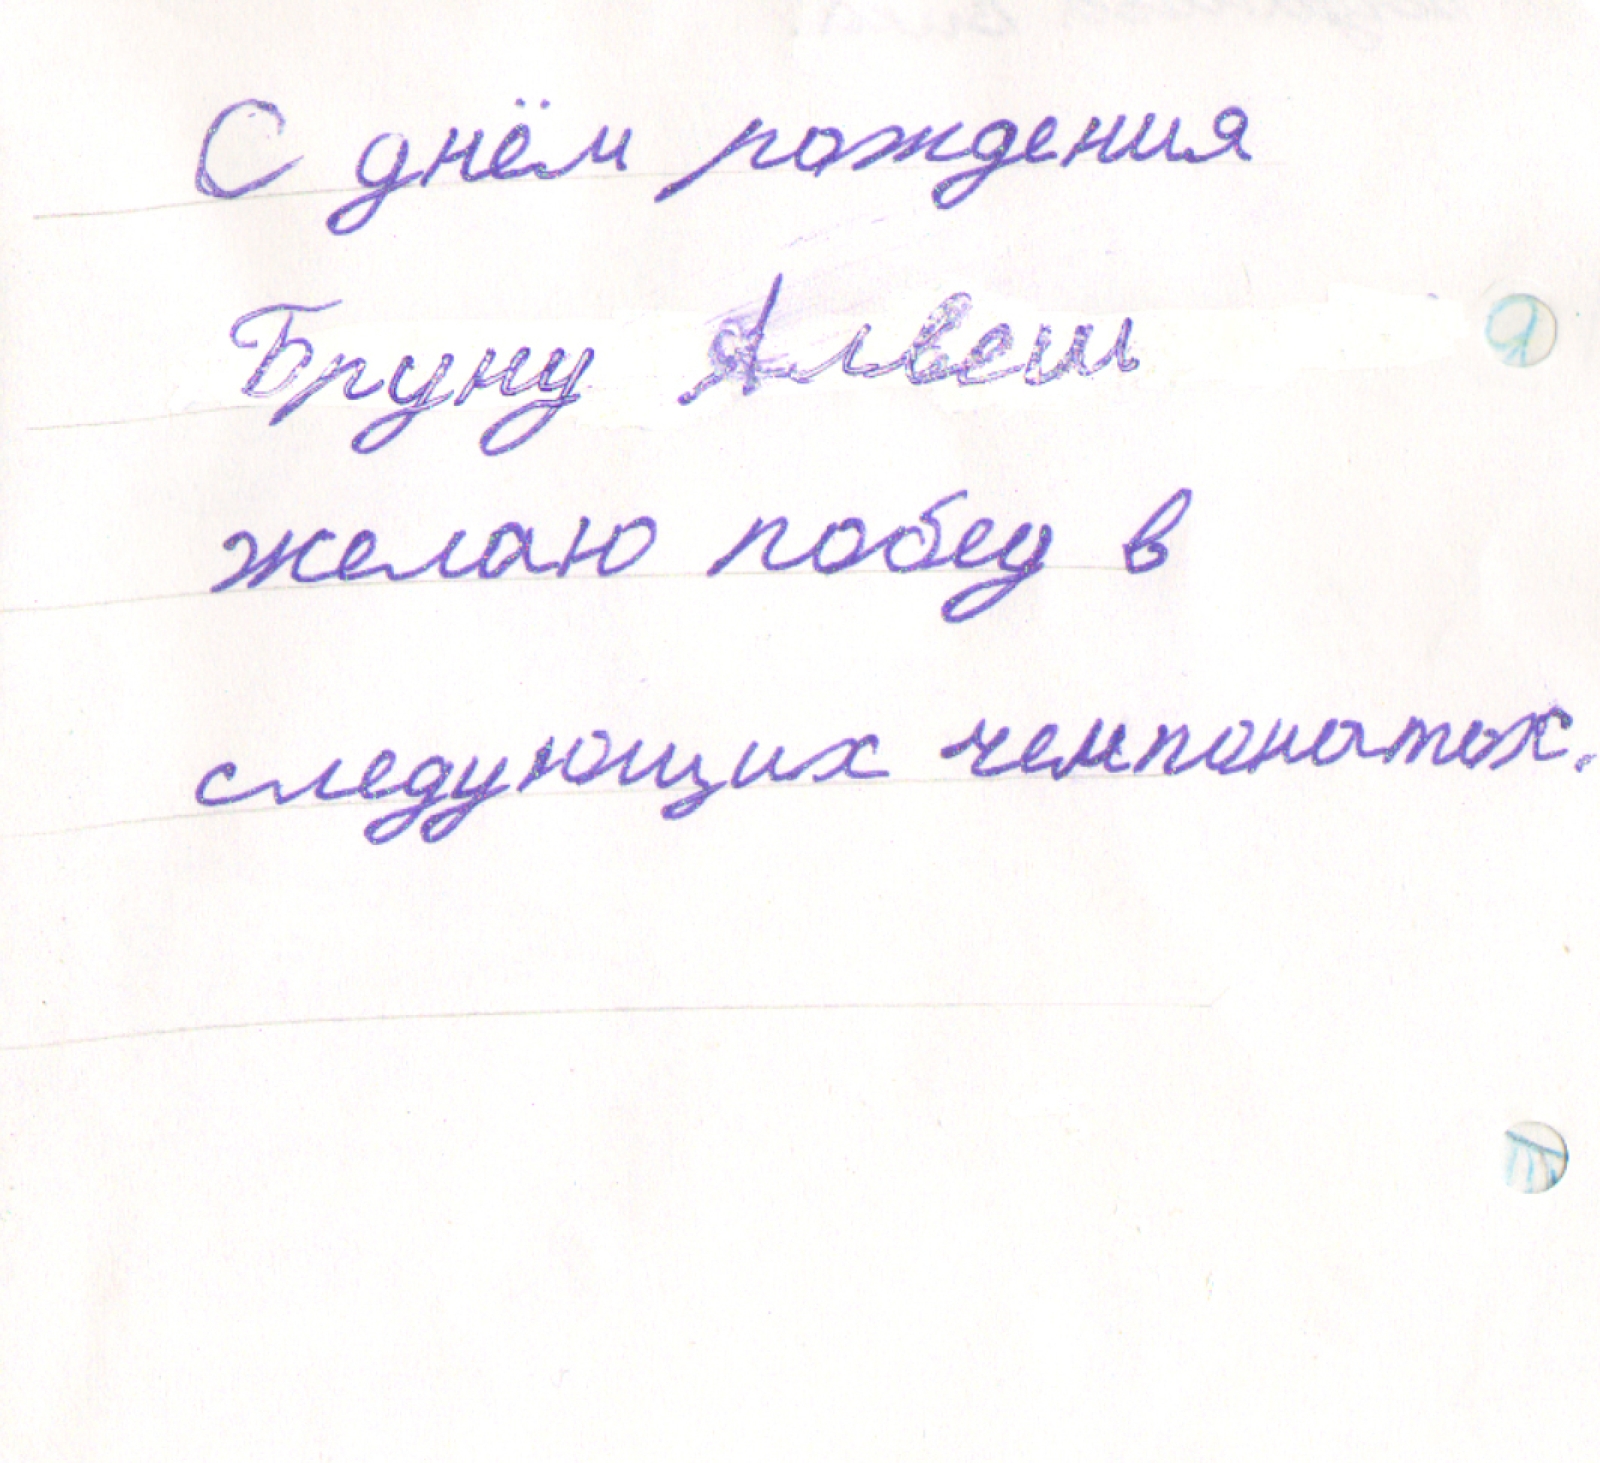 С днём рождения
Бруну Алвеш
желаю побед в
следующих чемпонатах.